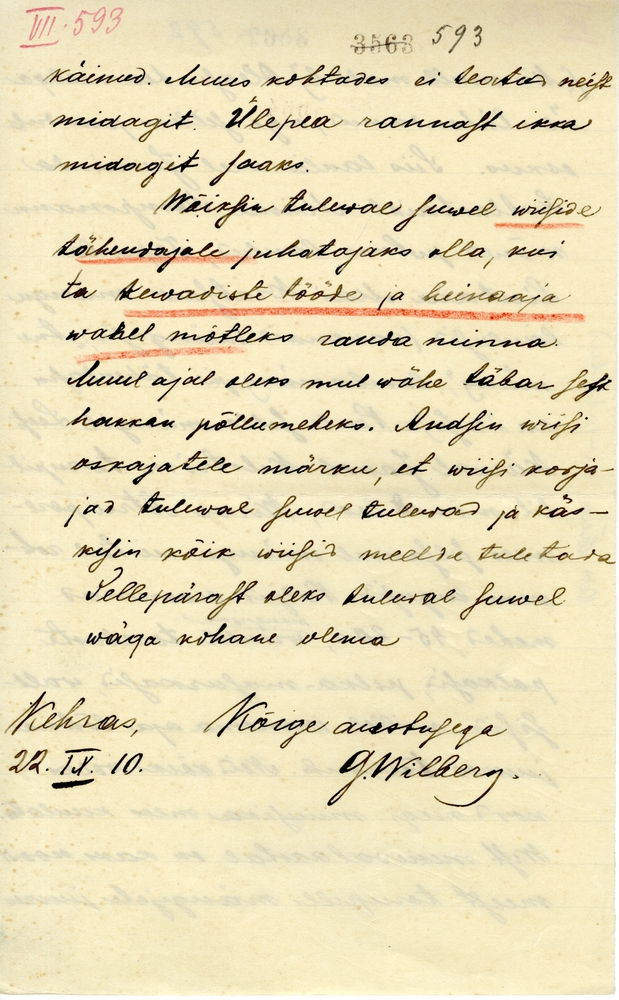 VII. 593
3563 593
käinud. Muus kohtades ei teatud neist
midagit. Ülepea rannast ikka
midagit saaks.
Wõiksin tulewal suwel wiiside
tähendajale juhatajaks olla, kui
ta kewadiste tööde ja heinaaja
wahel mõtleks randa minna.
Muul ajal oleks mul wähe täbar sest
hakkan põllumeheks. Andsin wiisi
oskajatele märku, et wiisi korja-
jad tulewal suwel tulewad ja käs-
kisin kõik wiisid meelde tuletada
Sellepärast oleks tulewal suwel
wäga kohane olema
Kehras, Kõige austusega
22. IX. 10. G. Wilberg.